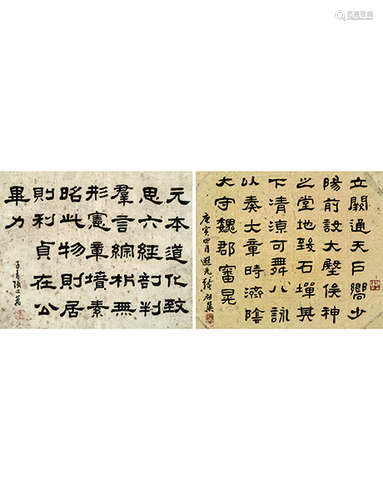 立闕通天戶嚮少
陽前設大壂俟神
之堂地致石墠其
下清涼可舞八詠
以奏大章時濟陰
大守魏郡審晃
庚寅四月
元本道化致
思六經剖判
羣言綜析無
形憲章墳素
昭此物則居
則利貞在公
畢力
子青張之萬